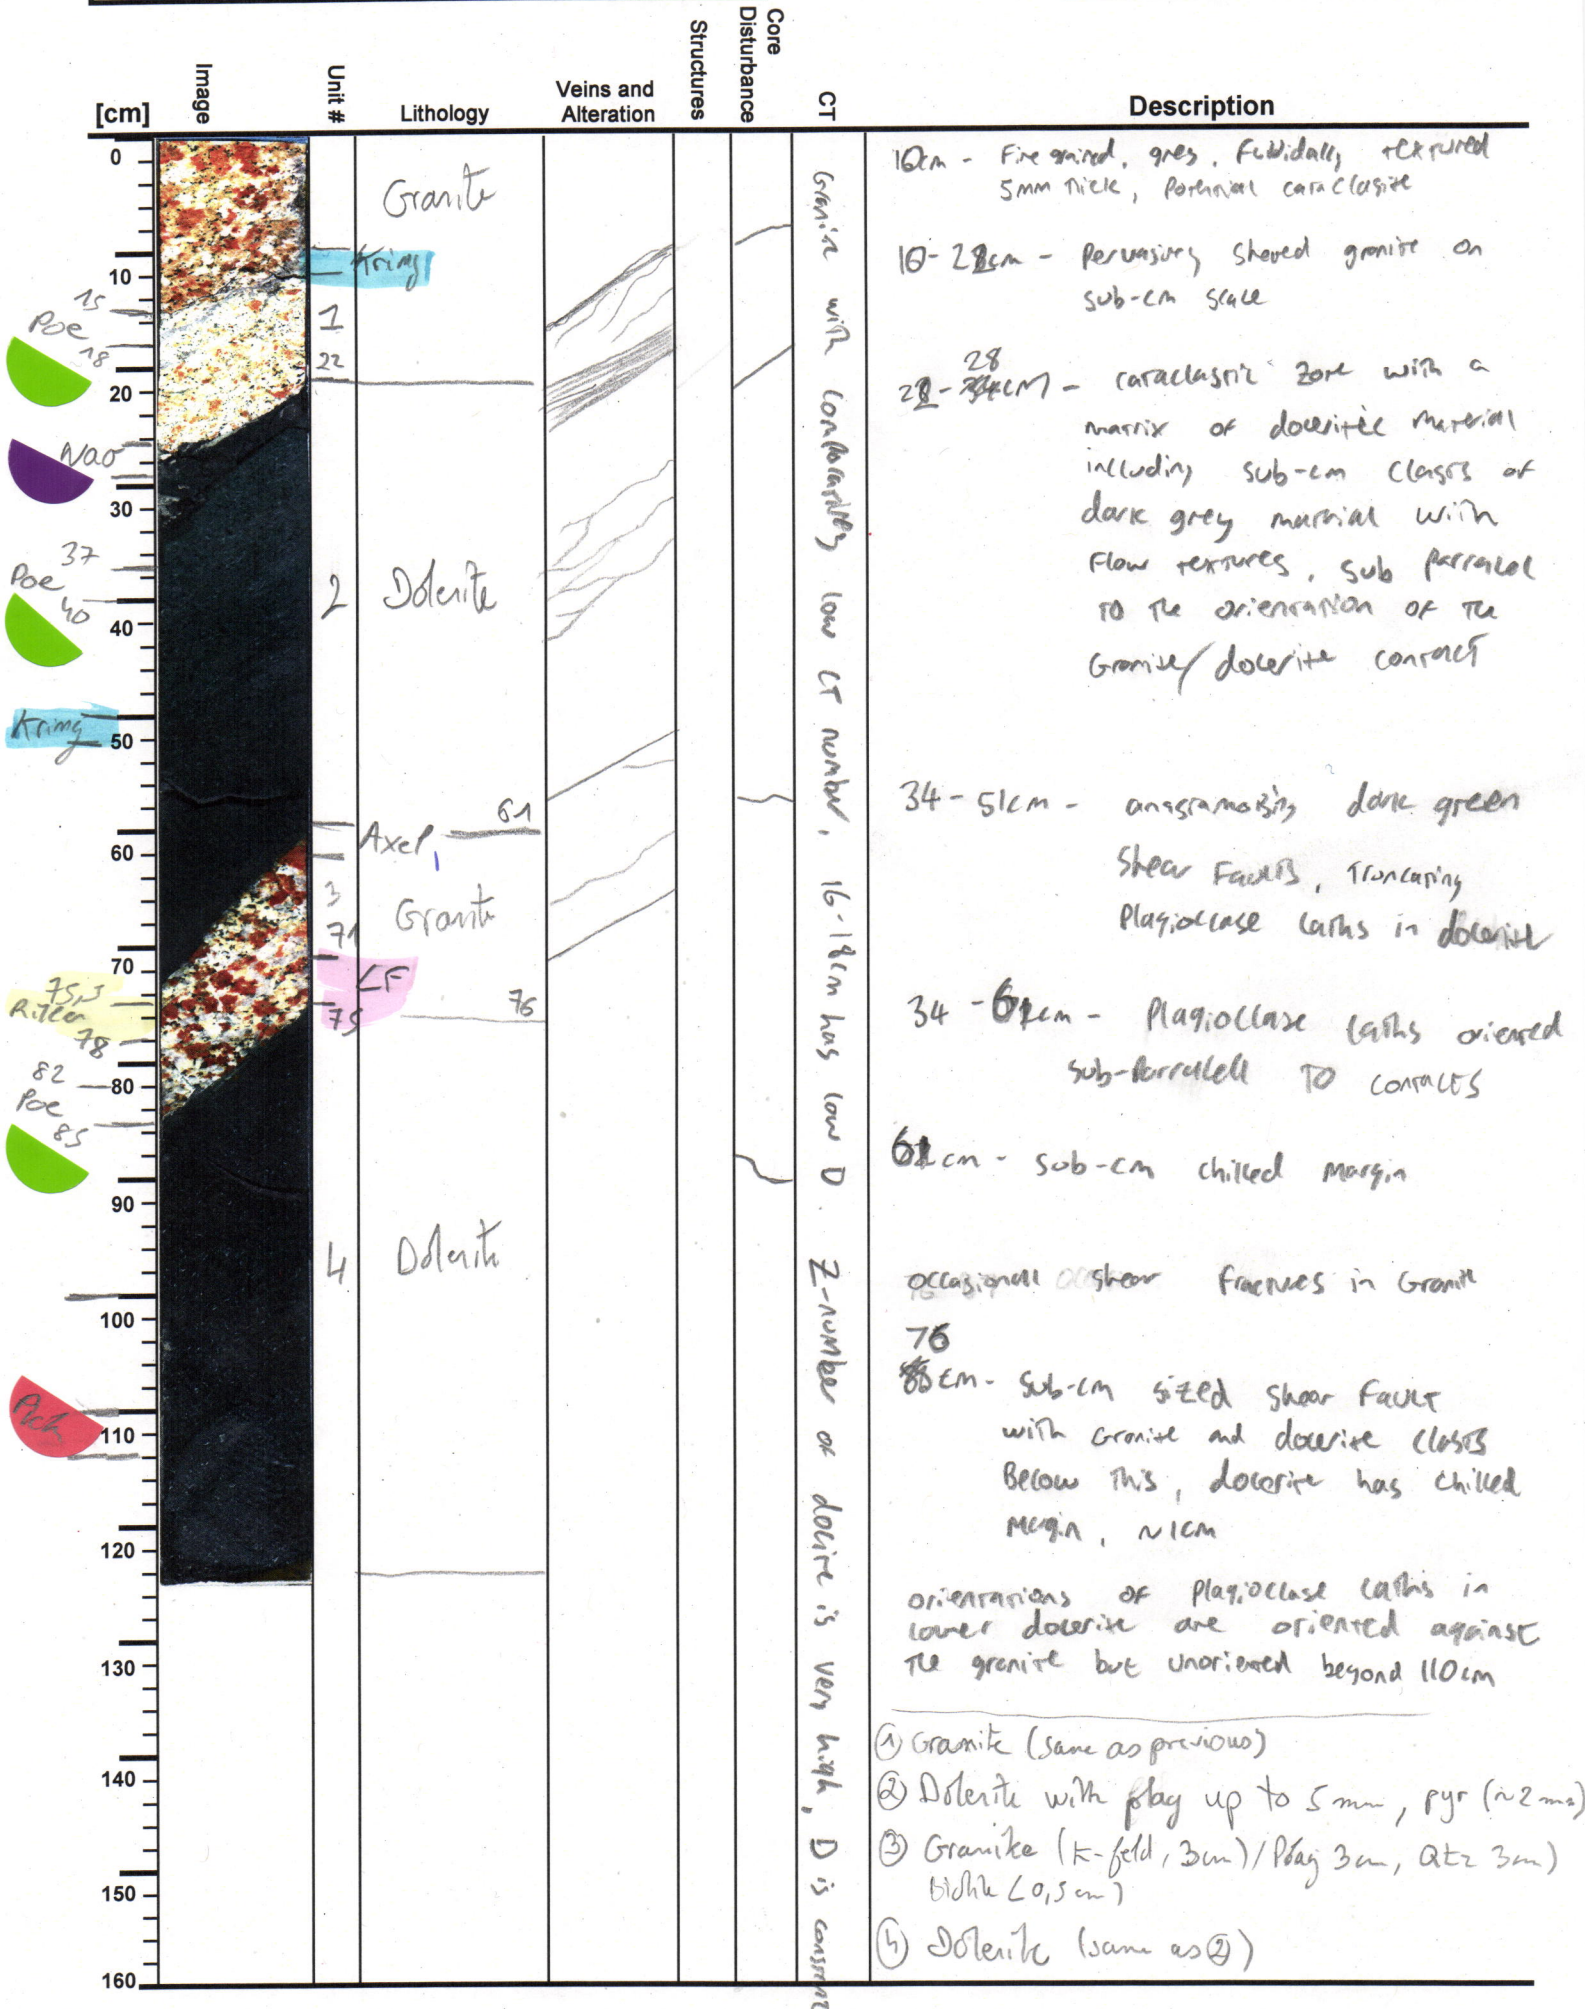 [cm]
Image
Unit #
Lithology
Veins and
Alteration
Structures
Core
Disturbance
CT
Description
0
10
20
30
40
50
60
70
80
90
100
110
120
130
140
150
160
15
Poe
18
Nao
37
Poe
40
Kring
75,5
78
82
Poe
85
Kring
1
22
2
Axel
61
3
71
LF
75
76
4
Granite
Dolerite
Granite
Dolerite
Granite with comparatively low CT number, 16-18cm has low D. Z-number of dolrite is very high, D is constant
10cm - Fine grained, grey, fluidally textured
5mm thick, potential cataclasite
10-22cm - pervasivly sheared granite on
sub-cm scale
28
22-34cm - cataclastic zone with a
matrix of doleritic material
including sub-cm clasts of
dark grey material with
flow textures, sub parralel
to the orientation of the
Granite/dolerite contact
34-51cm - anastamosing dark green
shear faults, truncating
plagioclase laths in dolerite
34-61cm - Plagioclase laths oriented
sub-parralell to contacts
61cm - sub-cm chilled margin
occasionall shear fractures in Granite
76
cm - sub-cm sized shear fault
with granite and dolerite clasts
Below this, dolerite has chilled
margin, ~1cm
orientations of plagioclase laths in
lower dolerite are oriented against
the granite but unoriented beyond 110cm
① Granite (same as previous)
② Dolerite with plag up to 5 mm, pyr (~2 mm)
③ Granite (K-feld, 3cm)/Plag 3cm, Qtz 3cm)
biotite (0,5cm)
④ Dolerite (same as ②)